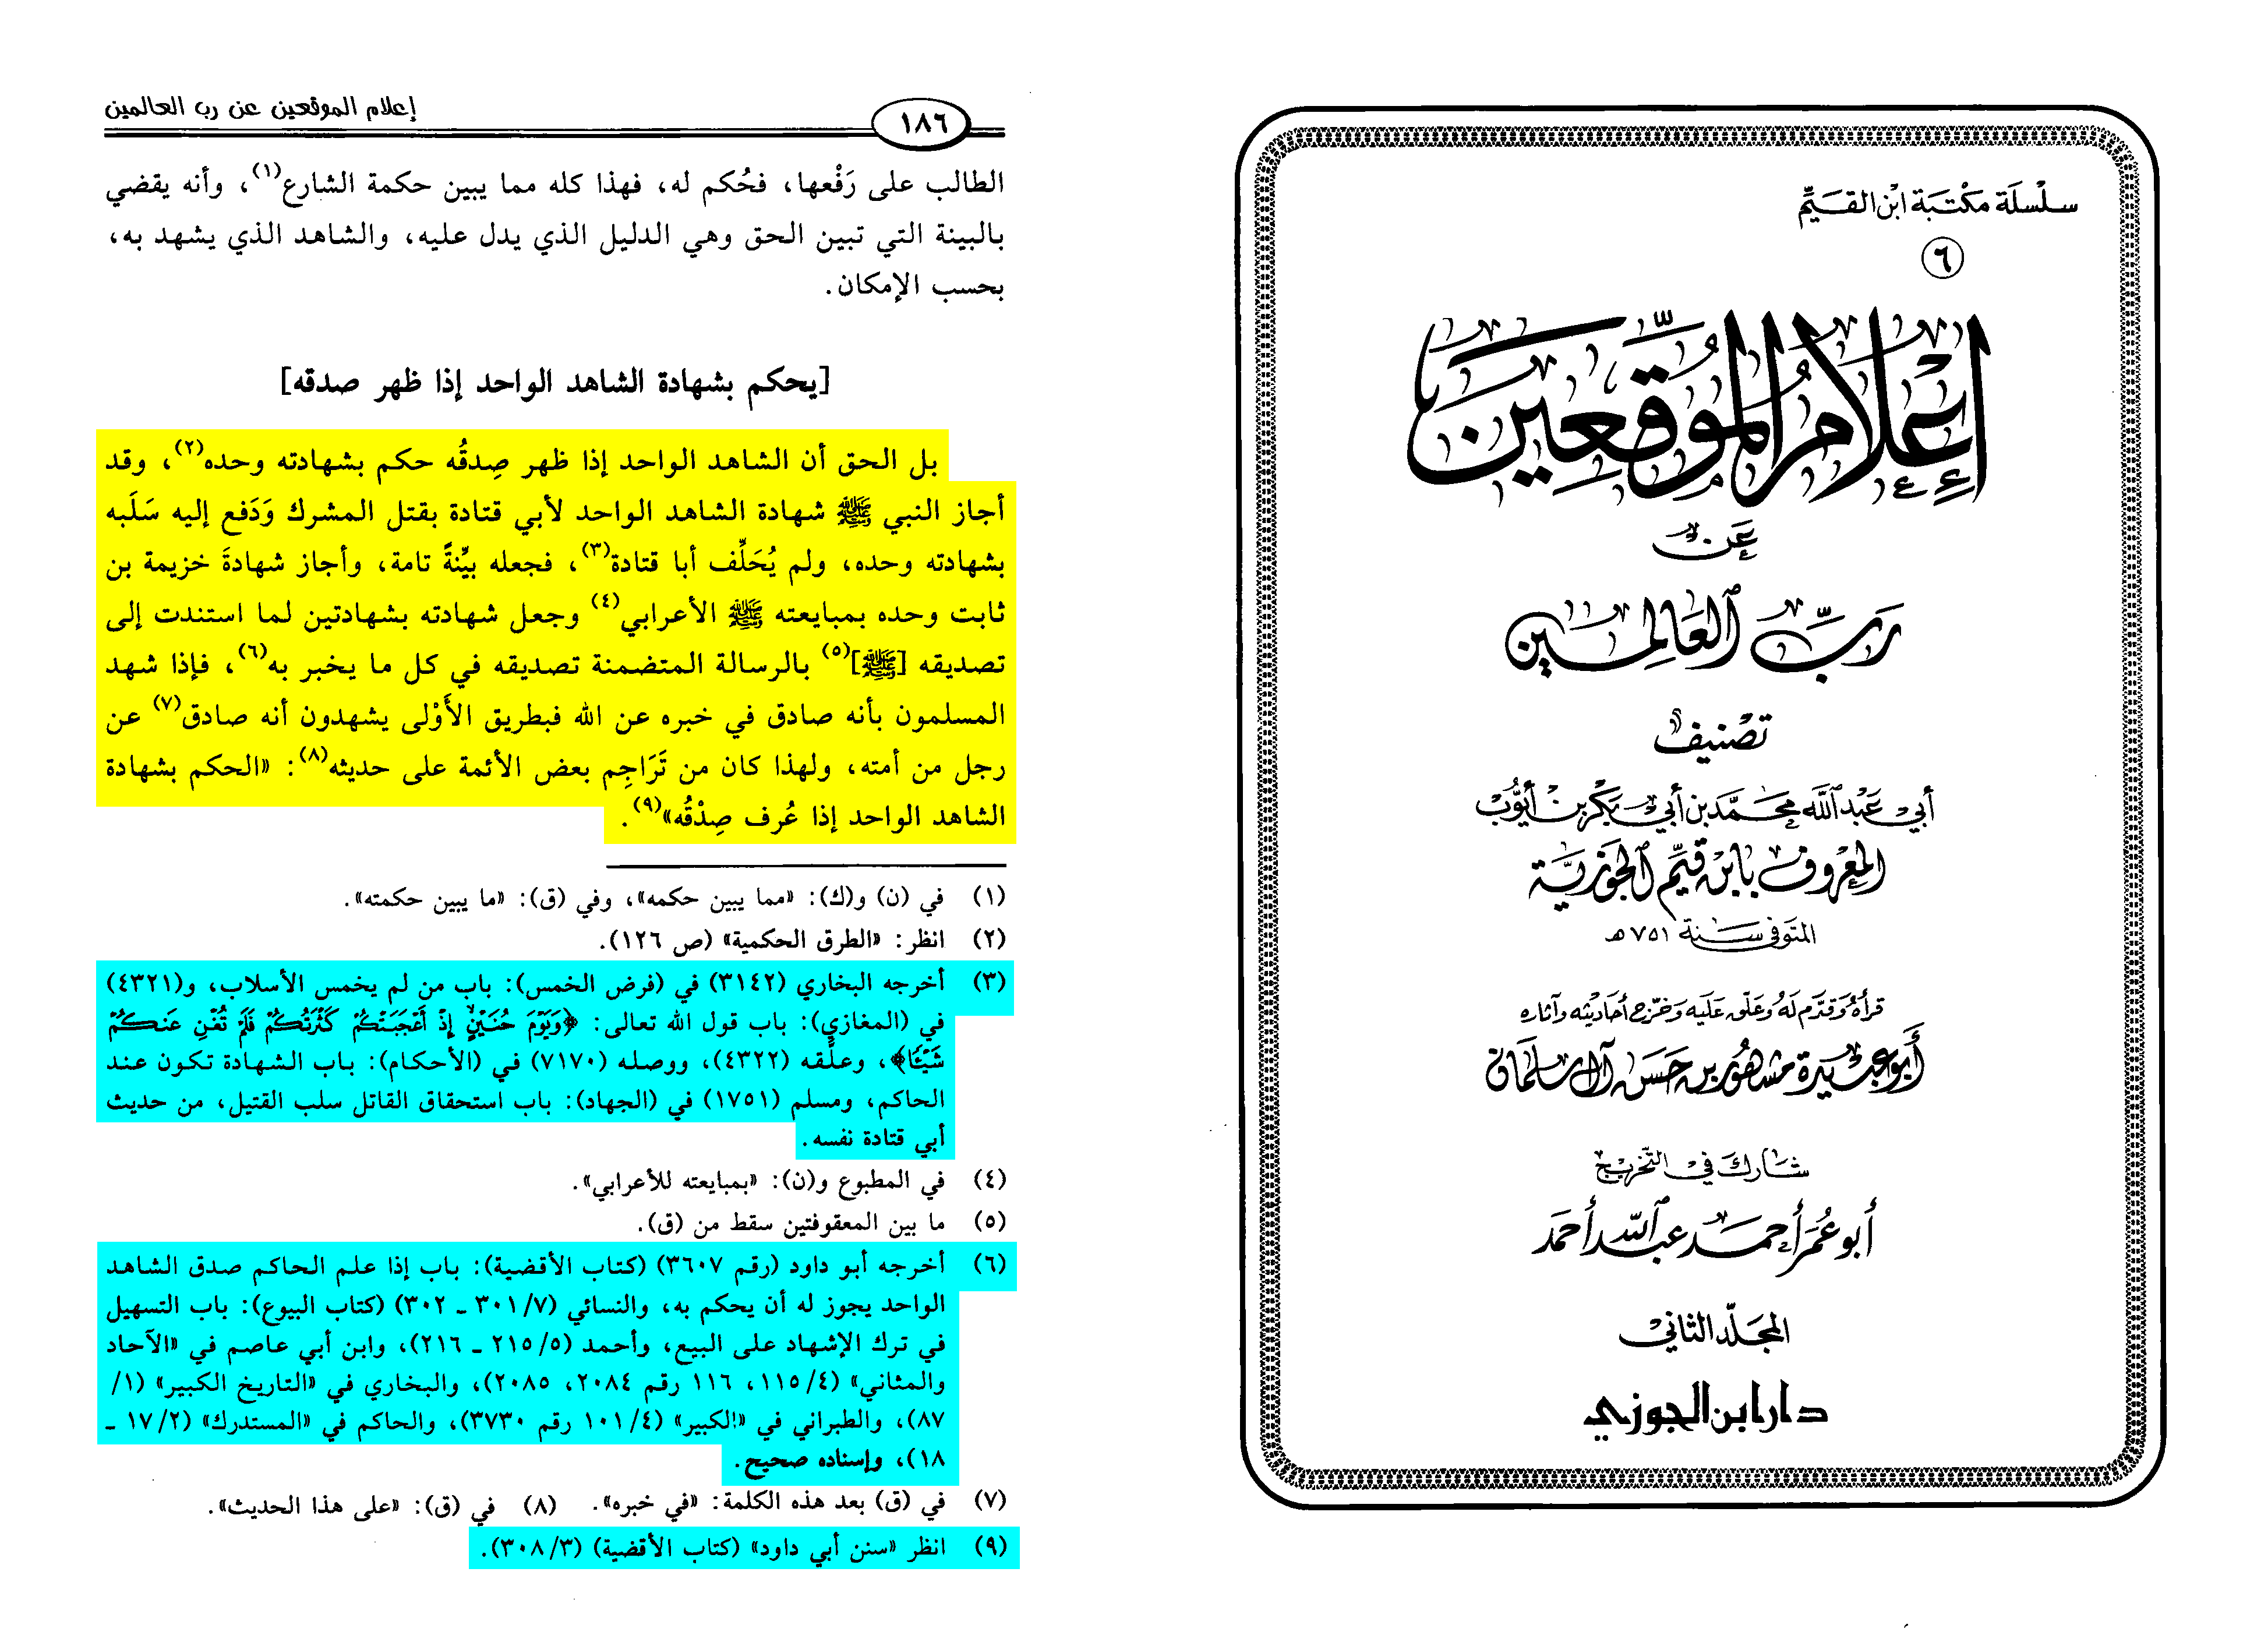 سلسلة مكتبة ابن القيم
٦
إعلام الموقعين
عن
رب العالمين
تصنيف
أبي عبد الله محمد بن أبي بكر بن أيوب
المعروف بابن قيم الجوزية
المتوفى سنة ٧٥١ هـ
قرأه وقدم له وعلق عليه وخرج أحاديثه وآثاره
أبو عبيدة مشهور بن حسن آل سلمان
شارك في التخريج
أبو عمر أحمد عبد الله أحمد
المجلد الثاني
دار ابن الجوزي
١٨٦
إعلام الموقعين عن رب العالمين
الطالب على رَفْعها، فحُكم له، فهذا كله مما يبين حكمة الشارع(١)، وأنه يقضي
بالبينة التي تبين الحق وهي الدليل الذي يدل عليه، والشاهد الذي يشهد به،
بحسب الإمكان.
[يحكم بشهادة الشاهد الواحد إذا ظهر صدقه]
بل الحق أن الشاهد الواحد إذا ظهر صِدقُه حكم بشهادته وحده(٢)، وقد
أجاز النبي ﷺ شهادة الشاهد الواحد لأبي قتادة بقتل المشرك وَدَفع إليه سَلَبه
بشهادته وحده، ولم يُحَلِّف أبا قتادة(٣)، فجعله بيِّنةً تامة، وأجاز شهادةَ خزيمة بن
ثابت وحده بمبايعته ﷺ الأعرابي(٤) وجعل شهادته بشهادتين لما استندت إلى
تصديقه [ﷺ](٥) بالرسالة المتضمنة تصديقه في كل ما يخبر به(٦)، فإذا شهد
المسلمون بأنه صادق في خبره عن الله فبطريق الأَوْلى يشهدون أنه صادق(٧) عن
رجل من أمته، ولهذا كان من تَرَاجِم بعض الأئمة على حديثه(٨): «الحكم بشهادة
الشاهد الواحد إذا عُرف صِدْقُه»(٩).
(١) في (ن) و(ك): «مما يبين حكمه»، وفي (ق): «ما يبين حكمته».
(٢) انظر: «الطرق الحكمية» (ص ١٢٦).
(٣) أخرجه البخاري (٣١٤٢) في (فرض الخمس): باب من لم يخمس الأسلاب، و(٤٣٢١)
في (المغازي): باب قول الله تعالى: ﴿وَيَوْمَ حُنَيْنٍ إِذْ أَعْجَبَتْكُمْ كَثْرَتُكُمْ فَلَمْ تُغْنِ عَنكُمْ
شَيْئًا﴾، وعلّقه (٤٣٢٢)، ووصله (٧١٧٠) في (الأحكام): باب الشهادة تكون عند
الحاكم، ومسلم (١٧٥١) في (الجهاد): باب استحقاق القاتل سلب القتيل، من حديث
أبي قتادة نفسه.
(٤) في المطبوع و(ن): «بمبايعته للأعرابي».
(٥) ما بين المعقوفتين سقط من (ق).
(٦) أخرجه أبو داود (رقم ٣٦٠٧) (كتاب الأقضية): باب إذا علم الحاكم صدق الشاهد
الواحد يجوز له أن يحكم به، والنسائي (٣٠١/٧ - ٣٠٢) (كتاب البيوع): باب التسهيل
في ترك الإشهاد على البيع، وأحمد (٢١٥/٥ - ٢١٦)، وابن أبي عاصم في «الآحاد
والمثاني» (١١٥/٤، ١١٦ رقم ٢٠٨٤، ٢٠٨٥)، والبخاري في «التاريخ الكبير» (١/
٨٧)، والطبراني في «الكبير» (١٠١/٤ رقم ٣٧٣٠)، والحاكم في «المستدرك» (١٧/٢ -
١٨)، وإسناده صحيح.
(٧) في (ق) بعد هذه الكلمة: «في خبره». (٨) في (ق): «على هذا الحديث».
(٩) انظر «سنن أبي داود» (كتاب الأقضية) (٣٠٨/٣).